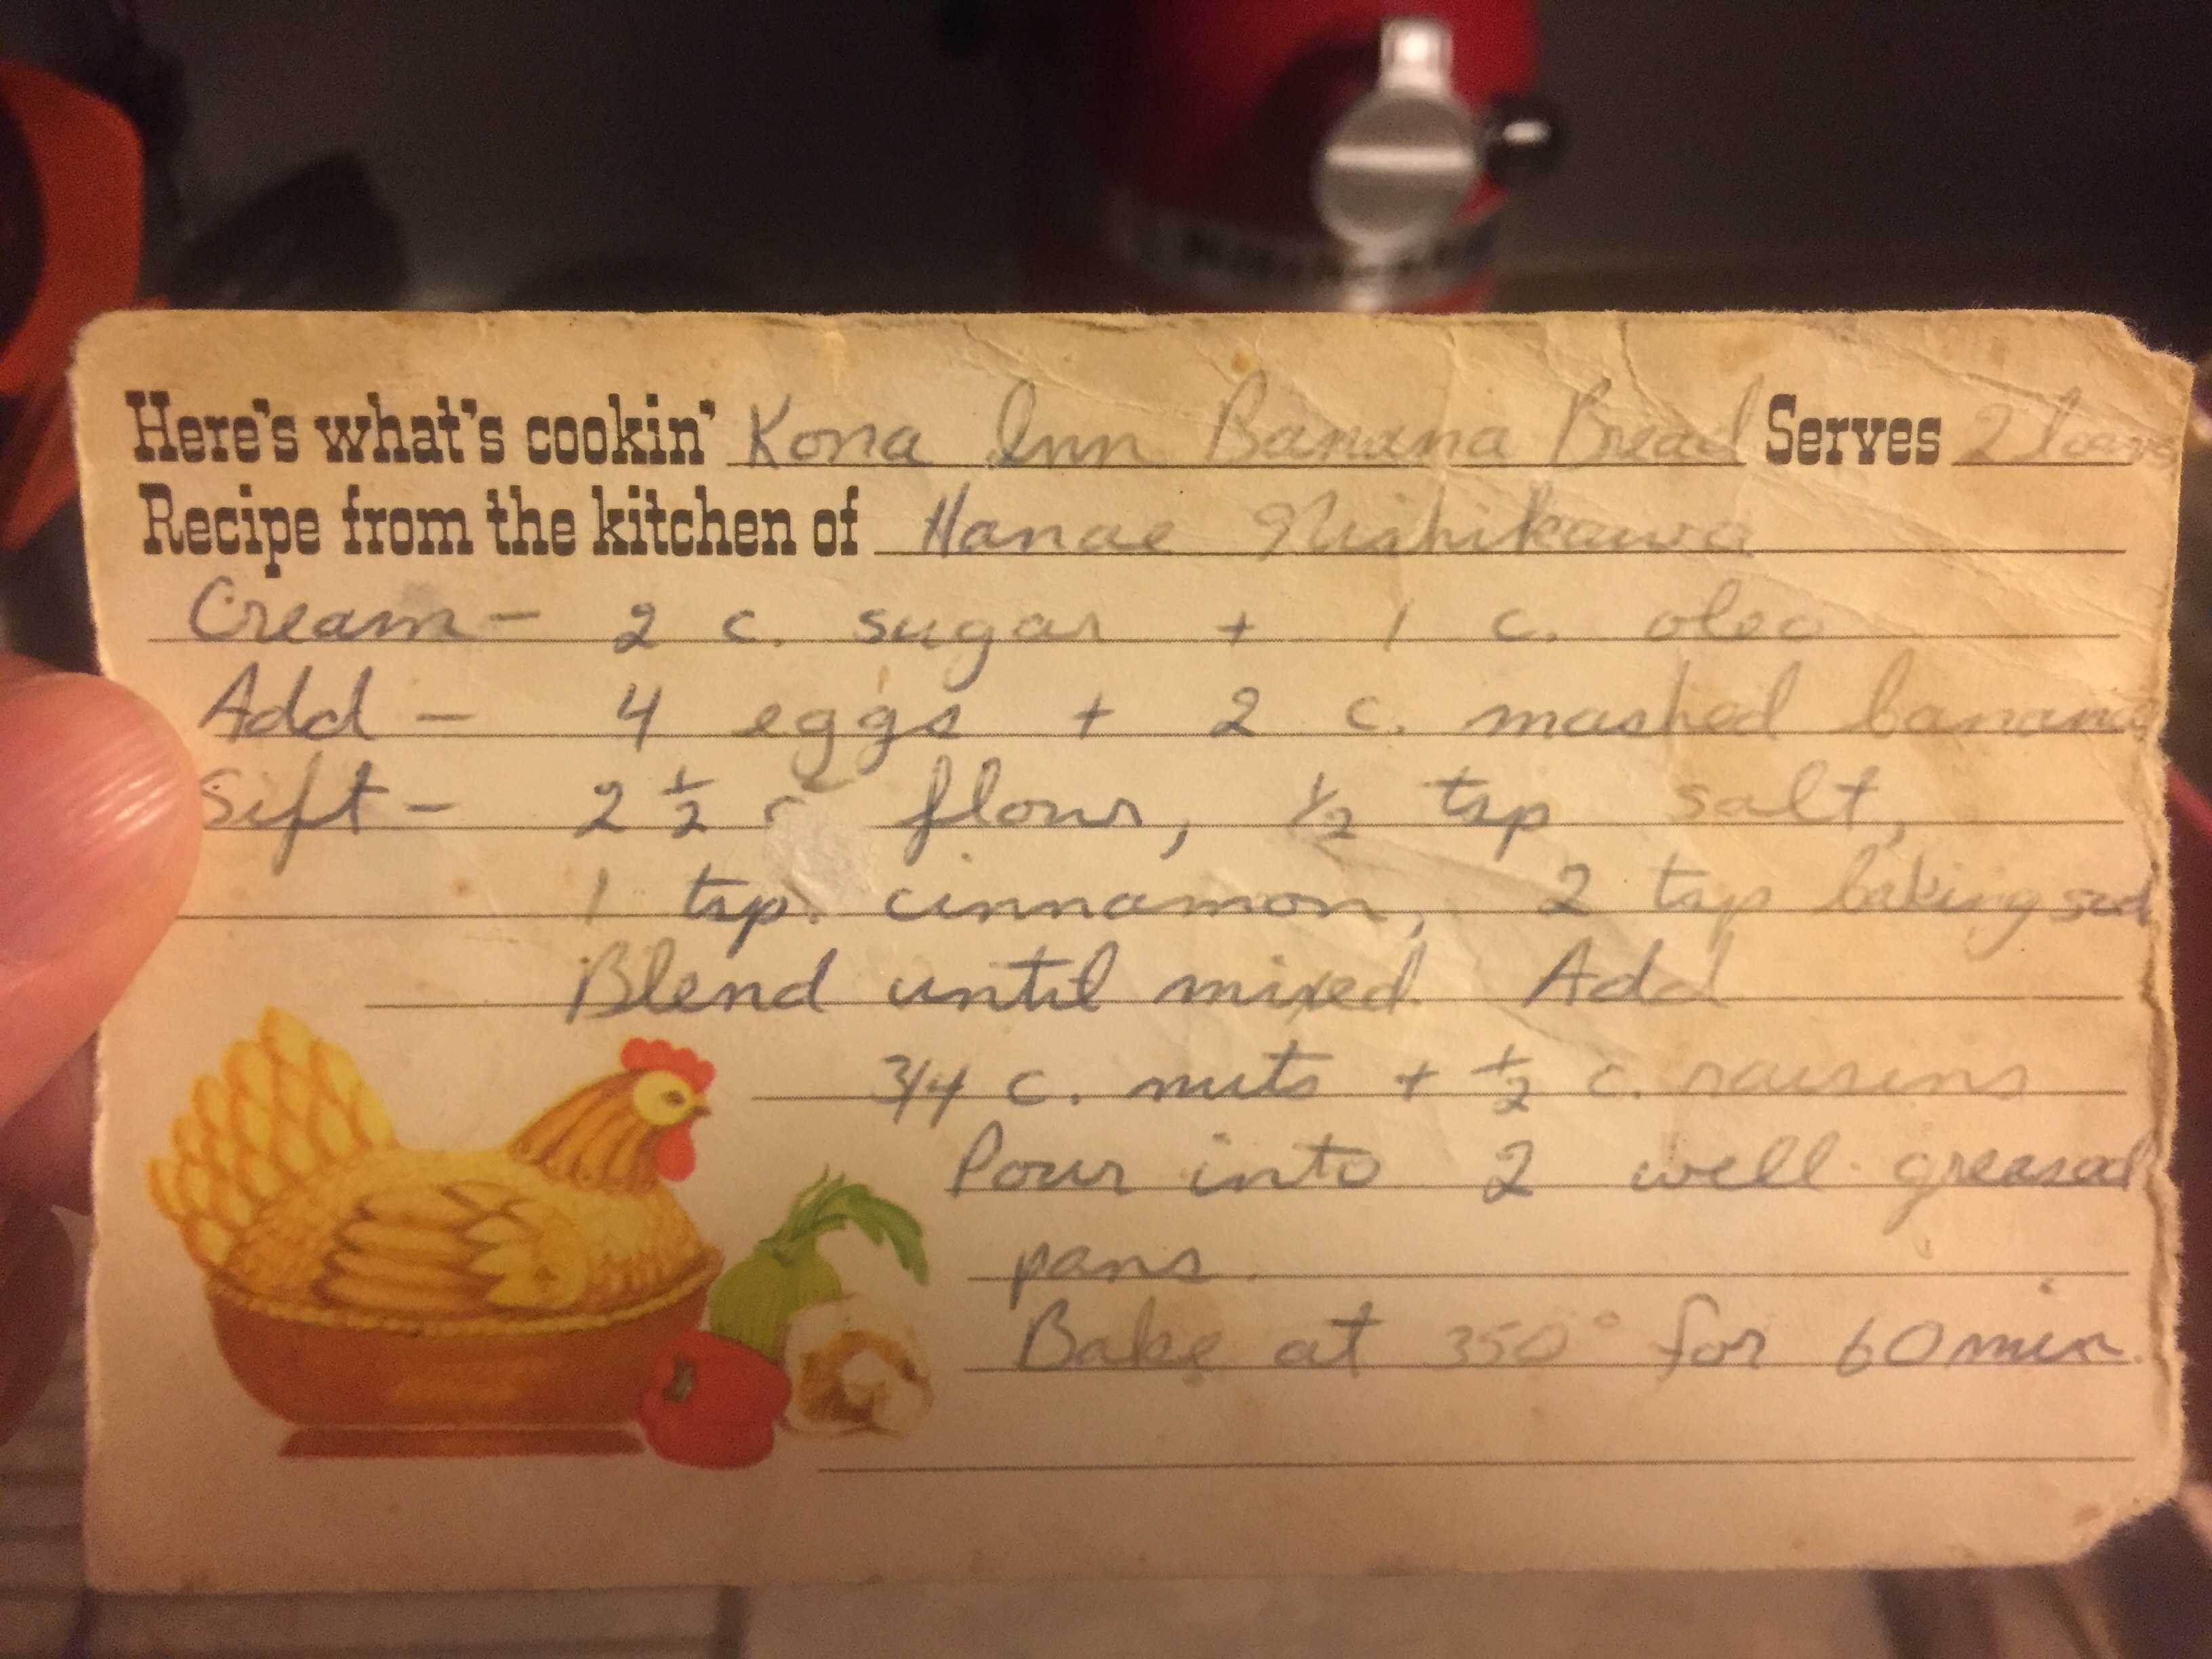 Here's what's cookin' Kona Inn Banana Bread Serves 2 loaves
Recipe from the kitchen of Hanae Nishikawa
Cream - 2 c. sugar + 1 c. oleo
Add - 4 eggs + 2 c. mashed banana
Sift - 2 1/2 c flour, 1/2 tsp salt,
1 tsp. cinnamon, 2 tsp baking sod
Blend until mixed Add
3/4 c. nuts + 1/2 c. raisins
Pour into 2 well greased
pans.
Bake at 350° for 60 min.